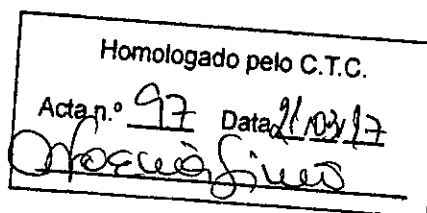 Homologado pelo C.T.C.
Acta n.º 97 Data 21/03/17